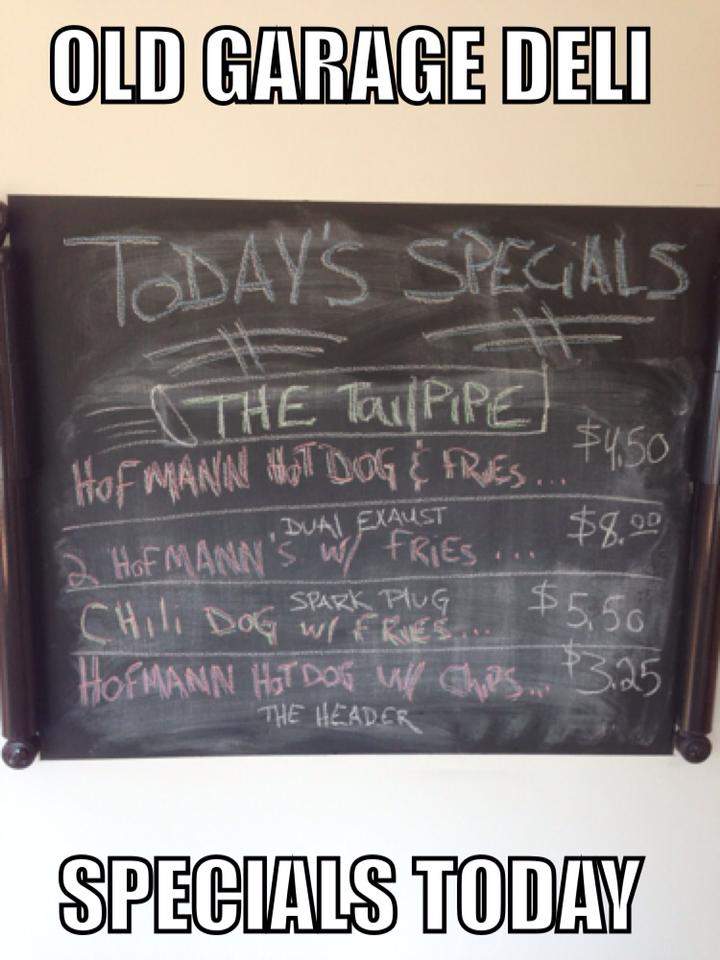 OLD GARAGE DELI
TODAY'S SPECIALS
THE TailPiPE
HOFMANN HOT DOG & FRIES... $4.50
DUAl EXAUST
2 HOFMANN'S W/ FRiES ... $8.00
SPARK PlUG
CHili DOG W/ FRIES... $5.50
HOFMANN HOT DOG W/ CHiPS... $3.25
THE HEADER
SPECIALS TODAY